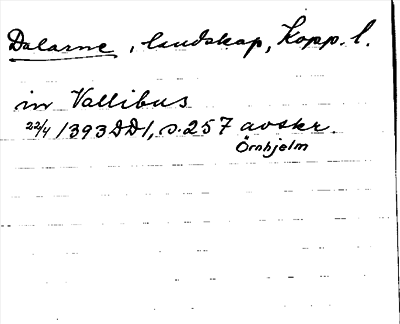 Dalarne, landskap, Kopp. l.
in Vallibus
22/4 1393 DD1, s. 257 avskr.
Örnhjelm